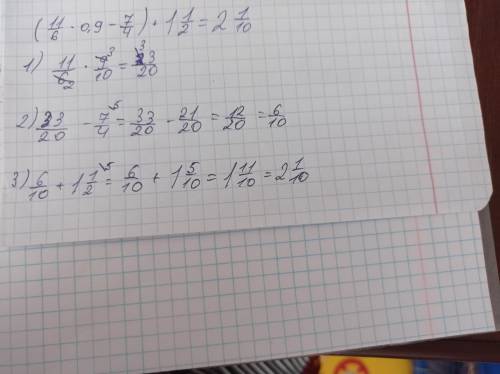 (11/6 · 0,9 − 7/4) + 1 1/2 = 2 1/10
1) 11/6 2 · 9/10 3 = 33/20
2) 33/20 − 7/4 5 = 33/20 − 21/20 = 12/20 = 6/10
3) 6/10 + 1 1/2 5 = 6/10 + 1 5/10 = 1 11/10 = 2 1/10